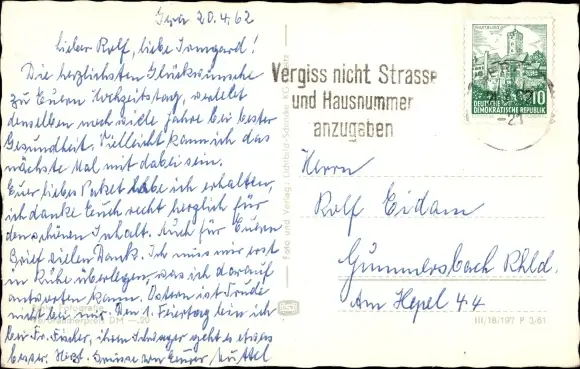 Gera 20.4.62
Lieber Rolf, liebe Irmgard!
Die herzlichsten Glückwünsche
zu Eurem Hochzeitstag, verlebt
denselben noch viele Jahre bei bester
Gesundheit. Vielleicht kann ich das
nächste Mal mit dabei sein.
Euer liebes Paket habe ich erhalten,
ich danke Euch recht herzlich für
den schönen Inhalt. Auch für Euren
Brief vielen Dank. Ich muss mir erst
in Ruhe überlegen, was ich darauf
antworten kann. Ostern ist Trude
nicht bei mir. Am 1. Feiertag bin ich
bei Fr. Fischer, ihrem Schwager geht es etwas
besser. Herzl. Grüsse von Eurer Muttel
Fotografie
DM —.20
Foto und Verlag: Lichtbild-Schincke KG
Vergiss nicht Strasse
und Hausnummer
anzugeben
WARTBURG
10
DEUTSCHE
DEMOKRATISCHE REPUBLIK
Herrn
Rolf Eidam
Gummersbach Rhld.
Am Hepel 44
III/18/197 P 3/61